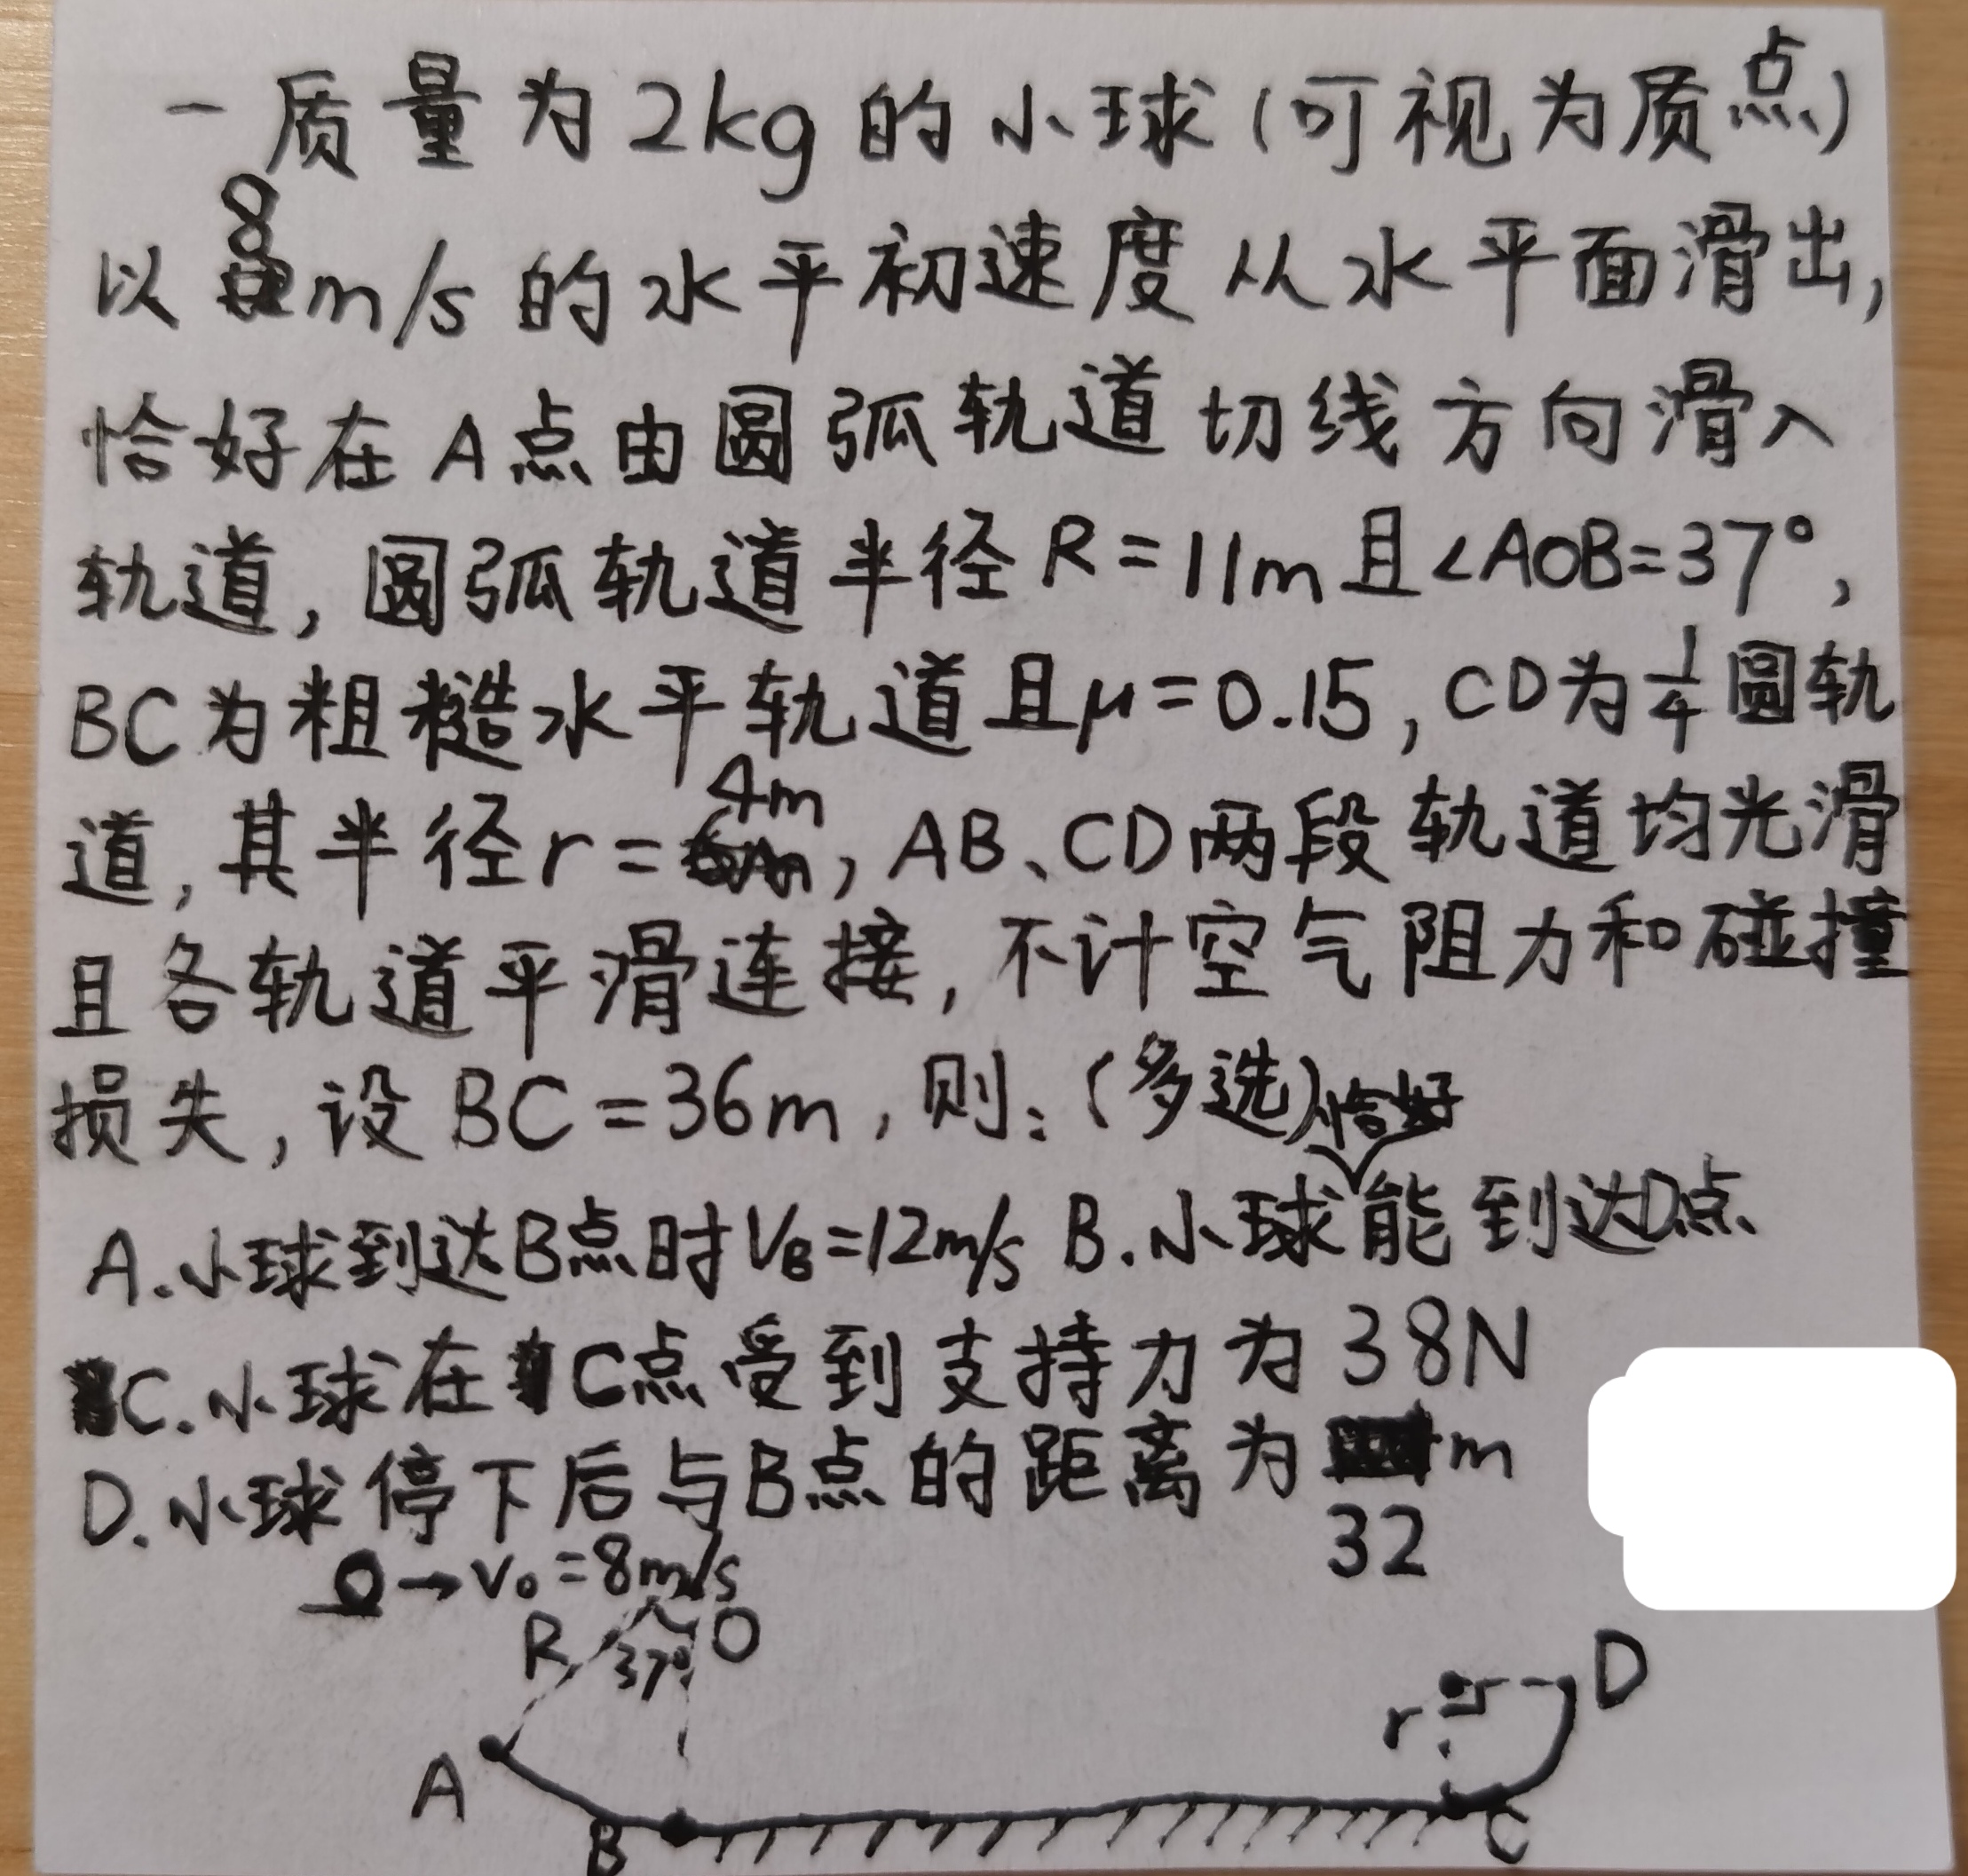 一质量为2kg的小球(可视为质点)
以8m/s的水平初速度从水平面滑出,
恰好在A点由圆弧轨道切线方向滑入
轨道,圆弧轨道半径R=11m且∠AOB=37°,
BC为粗糙水平轨道且μ=0.15,CD为1/4圆轨
道,其半径r=4m,AB、CD两段轨道均光滑
且各轨道平滑连接,不计空气阻力和碰撞
损失,设BC=36m,则:(多选)
A.小球到达B点时VB=12m/s B.小球恰好能到达D点
C.小球在C点受到支持力为38N
D.小球停下后与B点的距离为32m
→v₀=8m/s
R 37° O
D
r
A
B
C